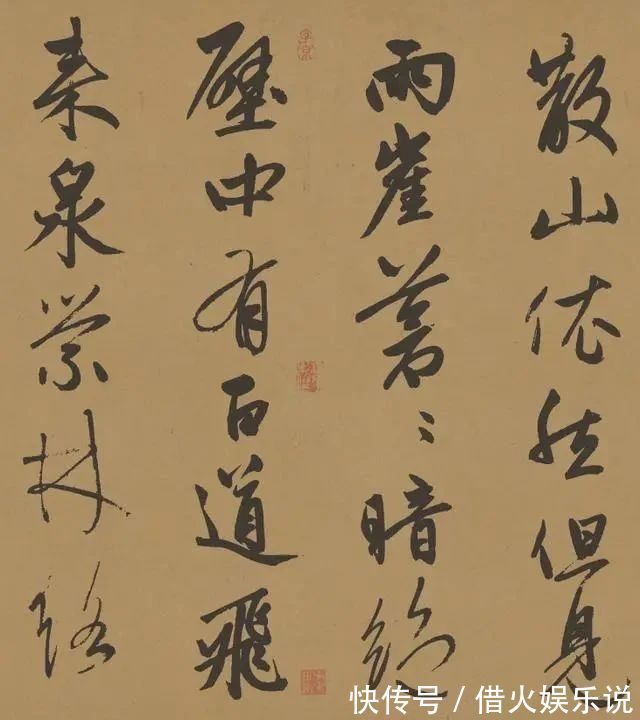 散山依然但見
兩崖蒼〻暗絕
壁中有百道飛
来泉縈林絡
快传号 / 借火娱乐说